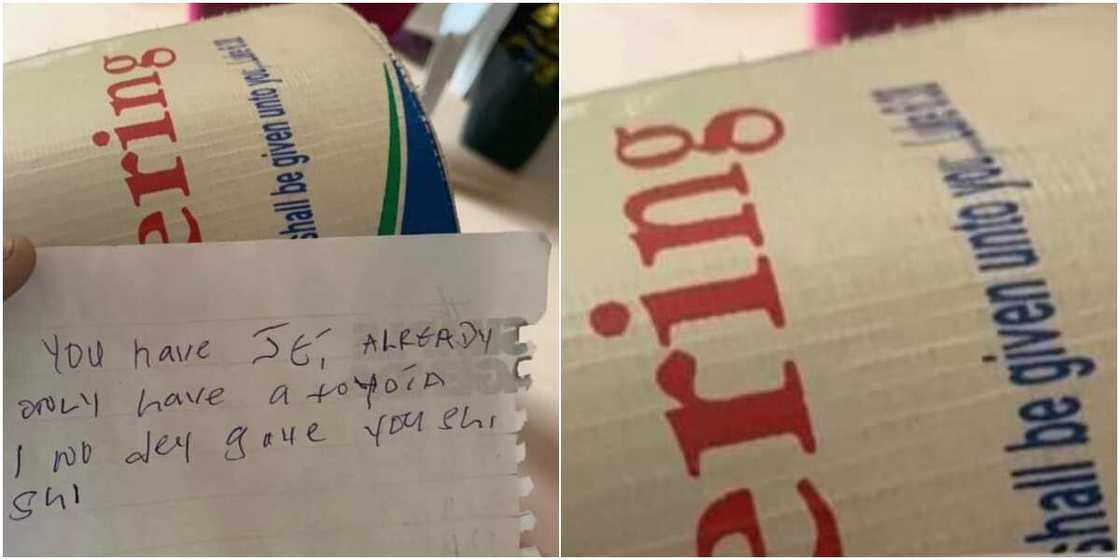 ering
shall be given unto you...
You have JET, ALREADY
ONLY have a toyota
I no dey gave you shi
shi
ering
shall be given unto you...